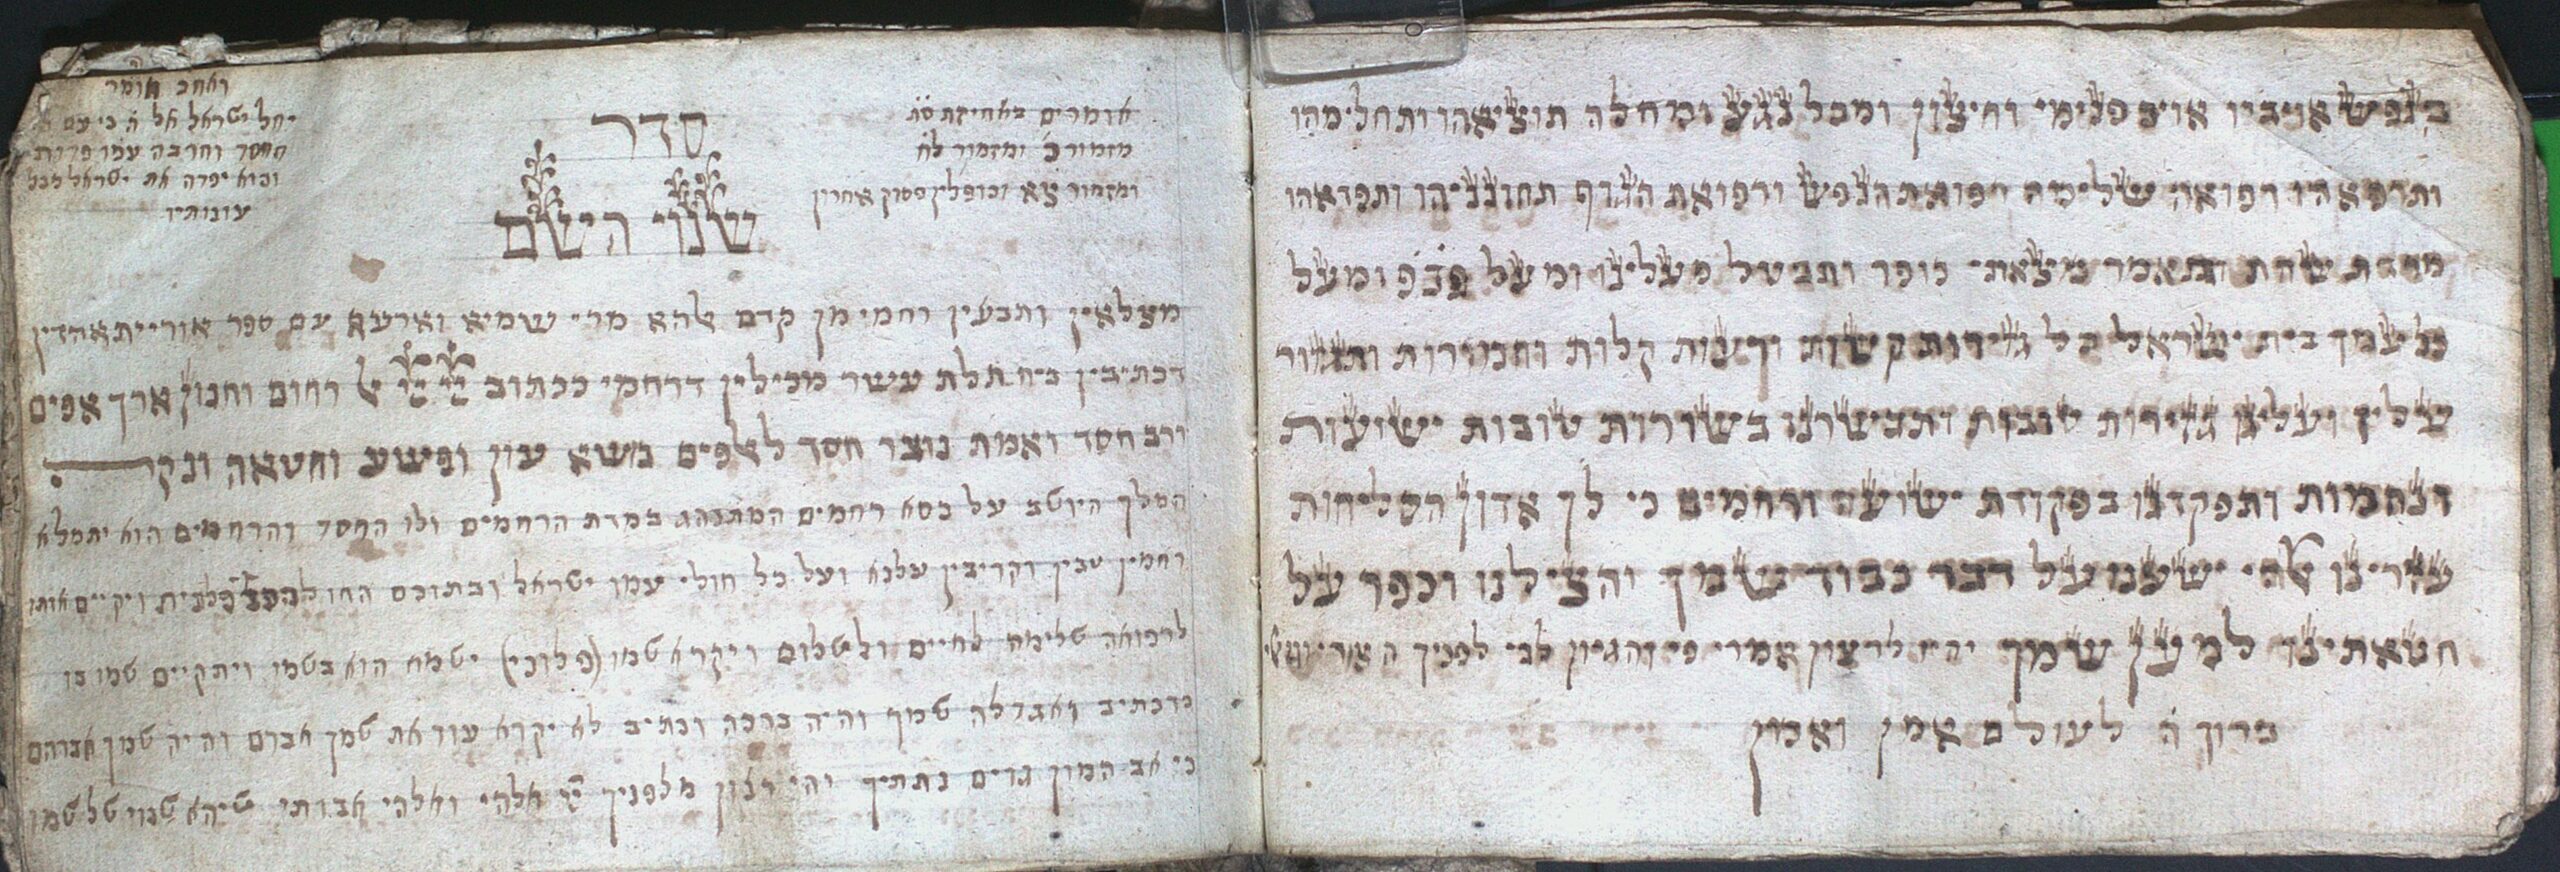 בנפש אויביו אויב פנימי וחיצון ומכל נגע ומחלה תוציאהו ותחלימהו
ותרפאהו רפואה שלימה רפואת הנפש ורפואת הגוף תחונניהו ותפדאהו
מרדת שחת ותאמר מצאתי כופר ותבטל מעלינו ומעל פב״פ ומעל
כל עמך בית ישראל כל גזירות קשות ורעות קלות וחמורות ותגזור
עליו ועלינו גזירות טובות ותבשרנו בשורות טובות ישועות
ונחמות ותפקדנו בפקודת ישועה ורחמים כי לך אדון הסליחות
עזרינו אלהי ישענו על דבר כבוד שמך והצילנו וכפר על
חטאתינו למען שמך יהיו לרצון אמרי פי והגיון לבי לפניך ה׳ צורי וגואלי
ברוך ה׳ לעולם אמן ואמן
אומרים באחיזת ס״ת
מזמור כ׳ ומזמור ל״ח
ומזמור צא וכופלין פסוק אחרון
סדר
שנוי השם
ואח״כ אומר
יחל ישראל אל ה׳ כי עם ה׳
החסד והרבה עמו פדות
והוא יפדה את ישראל מכל
עונותיו
מצלאין ותבעין רחמי מן קדם אלהא מרי שמיא וארעא עם ספר אורייתא הדין
דכתיבין ביה תלת עשר מכילין דרחמי ככתוב ייי ייי אל רחום וחנון ארך אפים
ורב חסד ואמת נוצר חסד לאלפים נשא עון ופשע וחטאה ונקה
המלך היושב על כסא רחמים המתנהג במדת הרחמים ולו החסד והרחמים הוא יתמלא
רחמין טבין וקריבין עלנא ועל כל חולי עמו ישראל ובתוכם החולה ויקיים אותו
לרפואה שלימה לחיים ולשלום ויקרא שמו (פלוני) ישמח הוא בשמו ויתקיים שמו בו
כדכתיב ואגדלה שמך והיה ברכה וכתיב לא יקרא עוד את שמך אברם והיה שמך אברהם
כי אב המון גוים נתתיך יהי רצון מלפניך ה׳ אלהי ואלהי אבותי שיהא שנוי של שמו